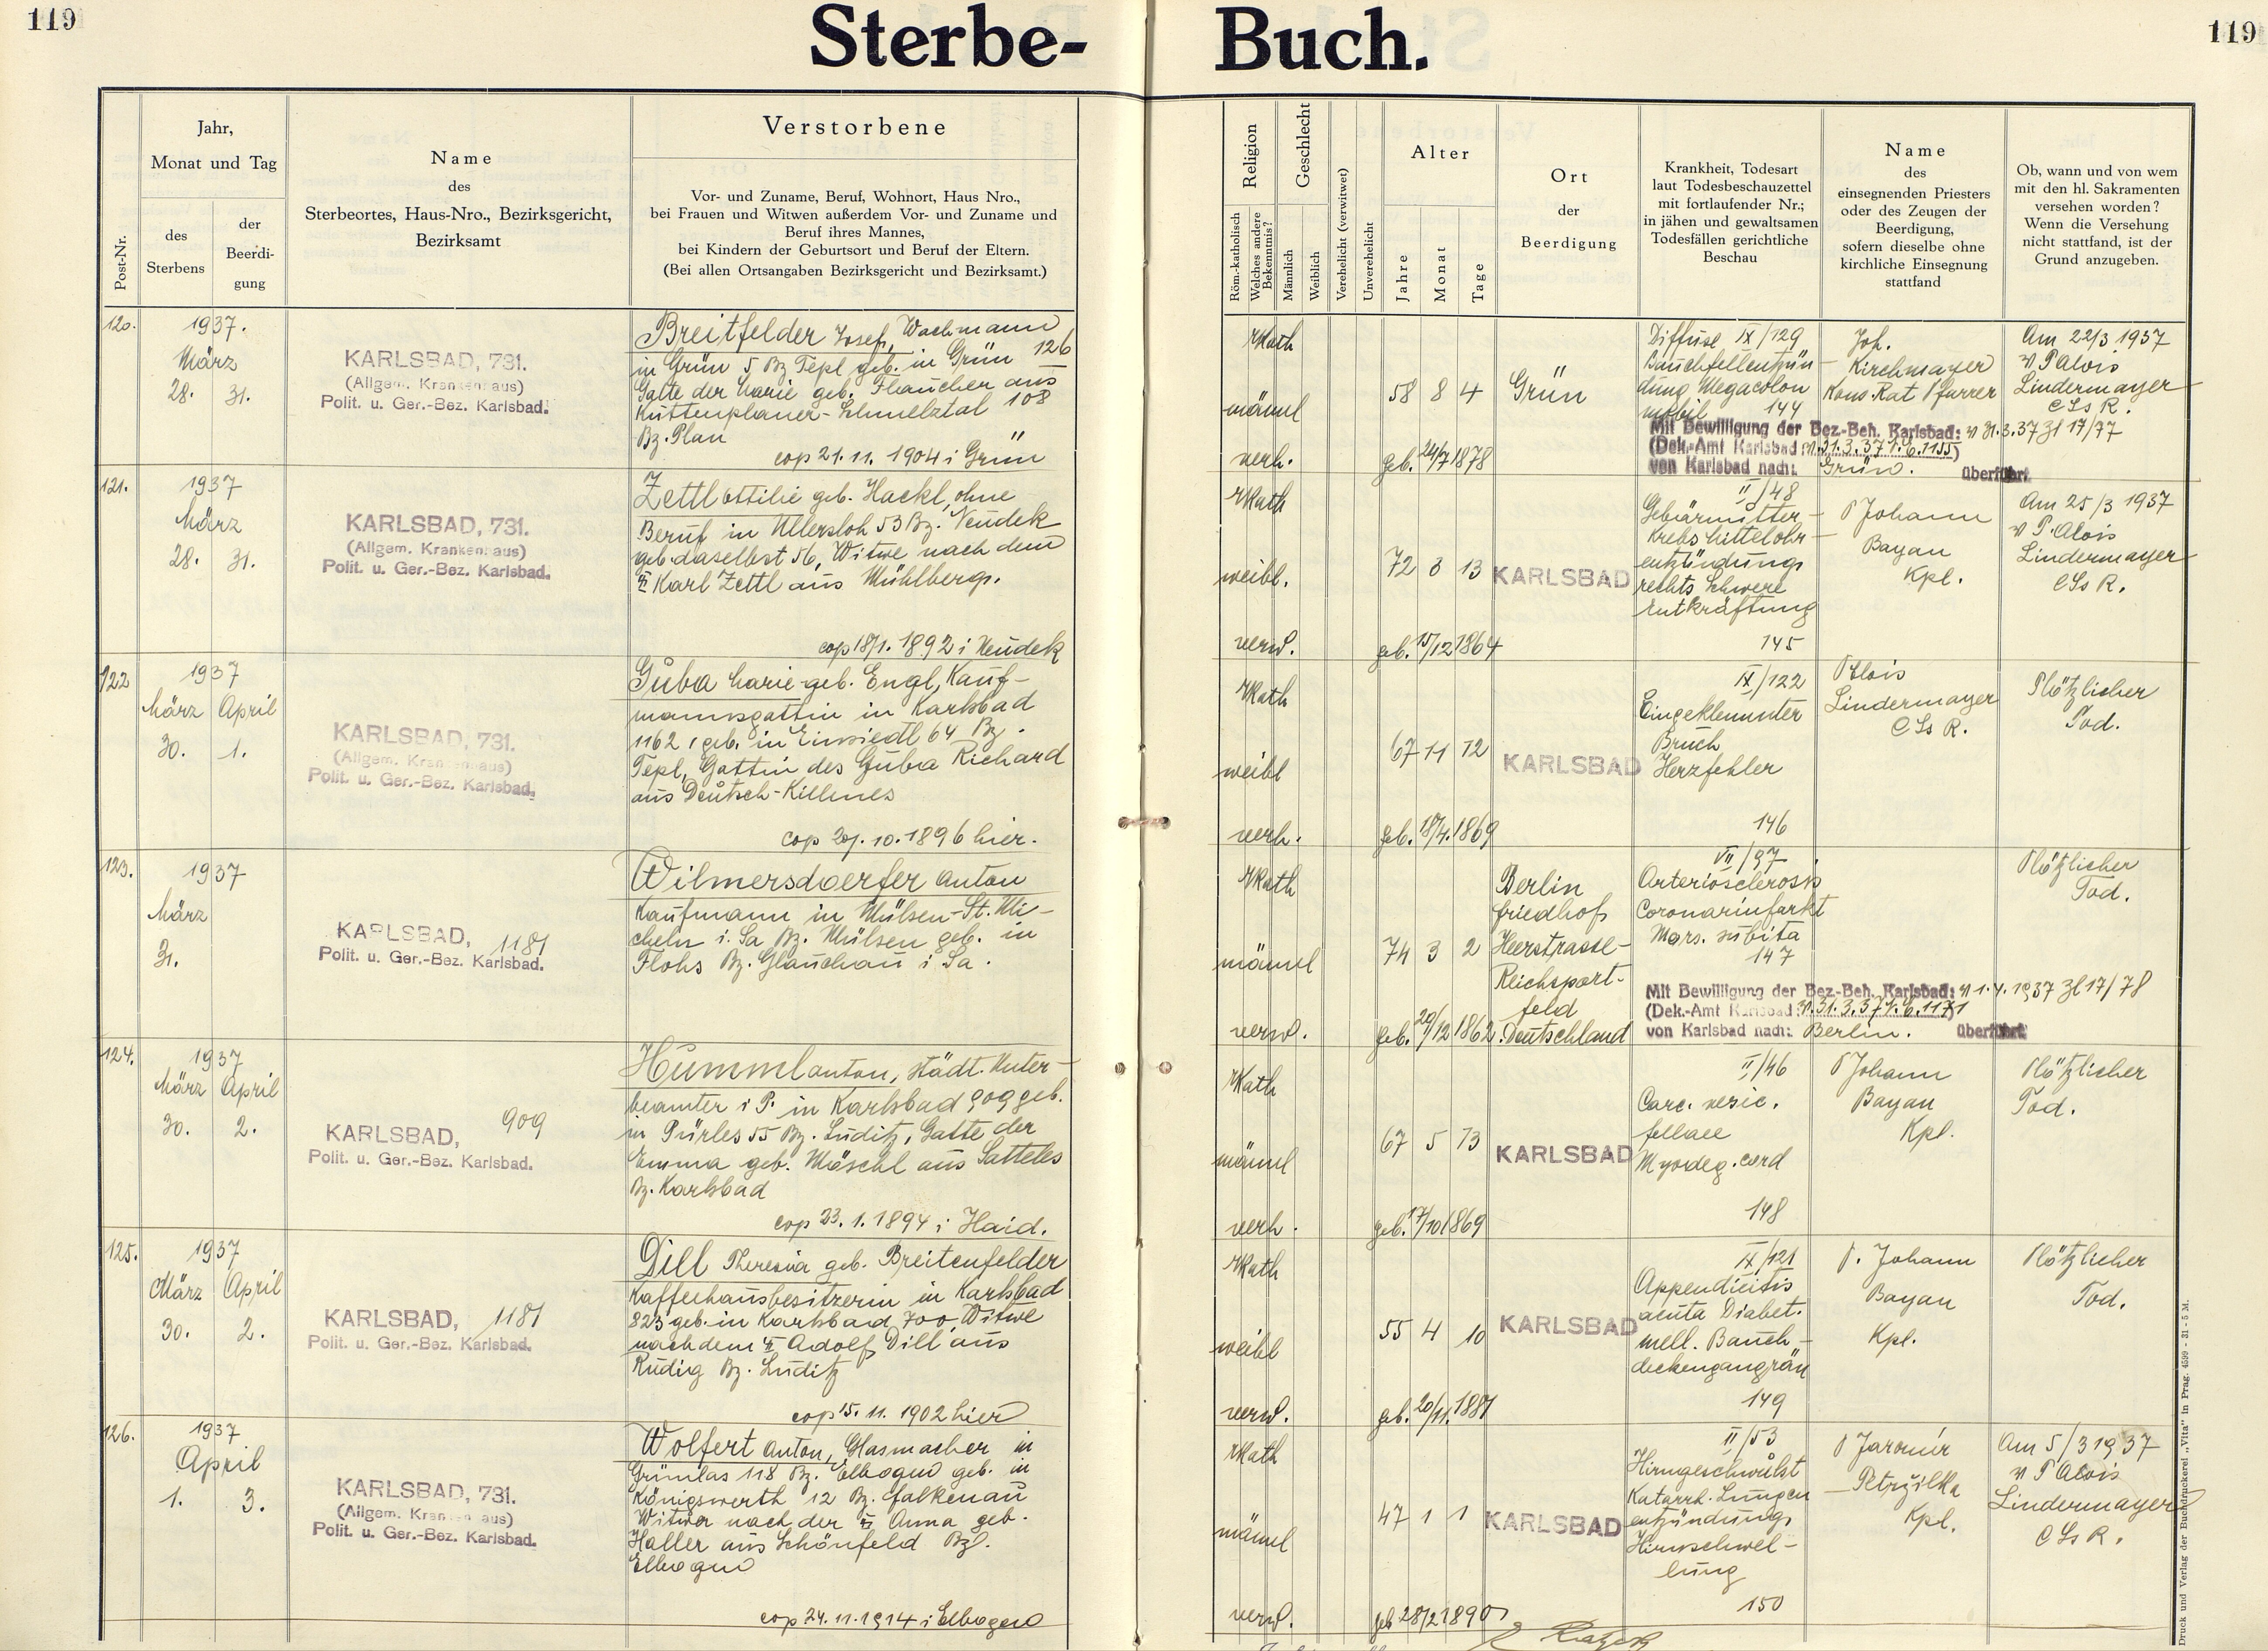 119
Sterbe- Buch.
119
Post-Nr.
Jahr,
Monat und Tag
des
Sterbens
der
Beerdi-
gung
Name
des
Sterbeortes, Haus-Nro., Bezirksgericht,
Bezirksamt
Verstorbene
Vor- und Zuname, Beruf, Wohnort, Haus Nro.,
bei Frauen und Witwen außerdem Vor- und Zuname und
Beruf ihres Mannes,
bei Kindern der Geburtsort und Beruf der Eltern.
(Bei allen Ortsangaben Bezirksgericht und Bezirksamt.)
Religion
Röm.-katholisch
Welches andere
Bekenntnis?
Geschlecht
Männlich
Weiblich
Verehelicht (verwitwet)
Unverehelicht
Alter
Jahre
Monat
Tage
Ort
der
Beerdigung
Krankheit, Todesart
laut Todesbeschauzettel
mit fortlaufender Nr.;
in jähen und gewaltsamen
Todesfällen gerichtliche
Beschau
Name
des
einsegnenden Priesters
oder des Zeugen der
Beerdigung,
sofern dieselbe ohne
kirchliche Einsegnung
stattfand
Ob, wann und von wem
mit den hl. Sakramenten
versehen worden?
Wenn die Versehung
nicht stattfand, ist der
Grund anzugeben.
120.
1937.
März
28. 31.
KARLSBAD, 731.
(Allgem. Krankenhaus)
Polit. u. Ger.-Bez. Karlsbad.
Breitfelder Josef, Wachmann
in Grün 5 Bz Tepl geb. in Grün 126
Gatte der Marie geb. Flaucher aus
Kuttenplaner-Schmelztal 108
Bz. Plan
cop 21.11.1904 i Grün
Rkath
männl
verh.
58 8 4
geb. 24/7 1878
Grün
Diffuse IX/129
Bauchfellentzün-
dung Megacolon
mobil 144
Joh.
Kirchmayer
Kons. Rat Pfarrer
Am 22/3 1937
v P Alois
Lindermayer
CSsR.
Mit Bewilligung der Bez.-Beh. Karlsbad: v 31.3.37 Zl 17/77
(Dek.-Amt Karlsbad v. 31.3.37 1.6.1155)
von Karlsbad nach: Grün. überführt
121.
1937
März
28. 31.
KARLSBAD, 731.
(Allgem. Krankenhaus)
Polit. u. Ger.-Bez. Karlsbad.
Zettl Ottilie geb. Hackl, ohne
Beruf in Ullersloh 53 Bz. Neudek
geb. daselbst 56, Witwe nach dem
Karl Zettl aus Mühlberg.
cop 18/1. 1892 i Neudek
Rkath
weibl.
verw.
72 3 13
geb. 15/12 1864
KARLSBAD
II/48
Gebärmutter-
krebs Mittelohr-
entzündung
rechts Schwere
Entkräftung
145
P Johann
Bayan
Kpl.
Am 25/3 1937
v P. Alois
Lindermayer
CSsR.
122
1937
März April
30. 1.
KARLSBAD, 731.
(Allgem. Krankenhaus)
Polit. u. Ger.-Bez. Karlsbad.
Guba Marie geb. Engl, Kauf-
mannsgattin in Karlsbad
1162, geb. in Einsiedl 64 Bz.
Tepl, Gattin des Guba Richard
aus Deutsch-Killmes
cop 20.10.1896 hier.
Rkath
weibl
verh.
67 11 12
geb. 18/4. 1869
KARLSBAD
IX/122
Eingeklemmter
Bruch
Herzfehler
146
P Alois
Lindermayer
CSsR.
Plötzlicher
Tod.
123.
1937
März
31.
KARLSBAD, 1181
Polit. u. Ger.-Bez. Karlsbad.
Wilmersdoerfer Anton
Kaufmann in Mülsen-St. Mi-
cheln i. Sa Bz. Mülsen geb. in
Flohs Bz. Glauchau i Sa.
Rkath
männl
verw.
74 3 2
geb. 29/12 1862
Berlin
Friedhof
Heerstrasse-
Reichsport-
feld
Deutschland
VII/97
Arteriosclerosis
Coronarinfarkt
Mors. subita
147
Plötzlicher
Tod.
Mit Bewilligung der Bez.-Beh. Karlsbad: v 1.4.1937 Zl 17/78
(Dek.-Amt Karlsbad v. 31.3.37 1.6.1171)
von Karlsbad nach: Berlin. überführt
124.
1937
März April
30. 2.
KARLSBAD, 909
Polit. u. Ger.-Bez. Karlsbad.
Hummel Anton, städt. Unter-
beamter i P. in Karlsbad 909 geb.
in Pürles 55 Bz. Luditz, Gatte der
Emma geb. Möschl aus Satteles
Bz. Karlsbad
cop 23.1.1894 i Haid.
Rkath
männl
verh.
67 5 13
geb. 17/10 1869
KARLSBAD
II/46
Carc. vesic.
felleae
Myodeg. cord
148
P Johann
Bayan
Kpl.
Plötzlicher
Tod.
125.
1937
März April
30. 2.
KARLSBAD, 1181
Polit. u. Ger.-Bez. Karlsbad.
Dill Theresia geb. Breitenfelder
Kaffeehausbesitzerin in Karlsbad
823 geb. in Karlsbad 700, Witwe
nach dem Adolf Dill aus
Rudig Bz. Luditz
cop 15.11.1902 hier
Rkath
weibl
verw.
55 4 10
geb. 20/11. 1881
KARLSBAD
IX/121
Appendicitis
acuta Diabet.
mell. Bauch-
deckengangrän
149
P. Johann
Bayan
Kpl.
Plötzlicher
Tod.
126.
1937
April
1. 3.
KARLSBAD, 731.
(Allgem. Krankenhaus)
Polit. u. Ger.-Bez. Karlsbad.
Wolfert Anton, Glasmacher in
Grünlas 118 Bz. Elbogen geb. in
Königswerth 12 Bz. Falkenau
Witwer nach der Anna geb.
Haller aus Schönfeld Bz.
Elbogen
cop 24.11.1914 i Elbogen
Rkath
männl
verw.
47 1 1
geb 28/2 1890
KARLSBAD
II/53
Hirngeschwulst
Katarrh. Lungen
entzündung
Hirnschwel-
lung
150
P Jaromír
Petržilka
Kpl.
Am 5/3 1937
v P Alois
Lindermayer
CSsR.
Druck und Verlag der Buchdruckerei „Vita" in Prag. 4599 - 31 - 5 M.